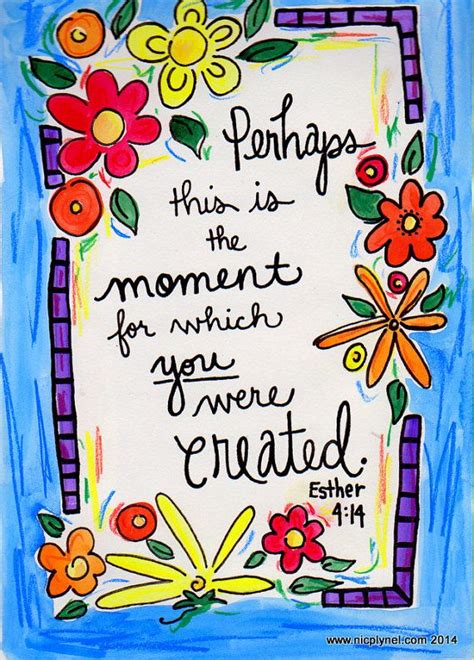 Perhaps
this is
the
moment
for which
you
were
created.
Esther
4:14
www.nicplynel.com 2014